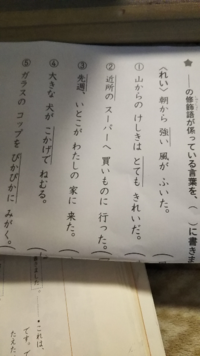 ★――の修飾語が係っている言葉を、( )に書きま
〈れい〉朝から強い風が ふいた。
① 山からの けしきは とても きれいだ。(
② 近所の スーパーへ 買いものに 行った。(
③ 先週、いとこが わたしの 家に 来た。(
④ 大きな 犬が こかげで ねむる。(
⑤ ガラスの コップを ぴかぴかに みがく。(
・これは、
です。
たえた